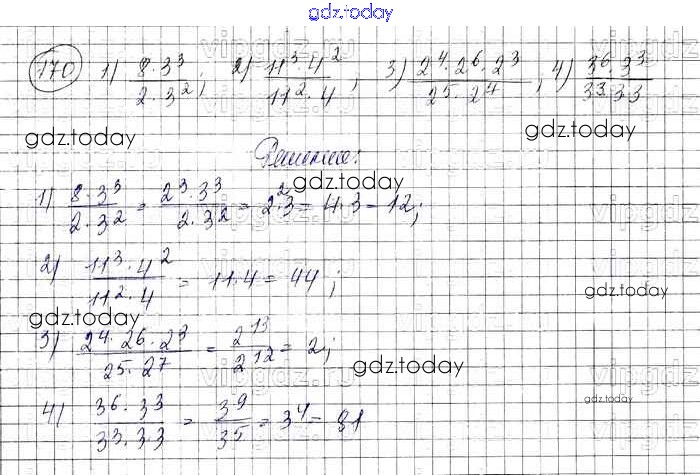 gdz.today
170 1) 8·3³/2·3²; 2) 11³·4²/11²·4; 3) 2⁴·2⁶·2³/2⁵·2⁴; 4) 3⁶·3³/33·33
gdz.today gdz.today
Решение:
gdz.today
1) 8·3³/2·3² = 2³·3³/2·3² = 2²·3 = 4·3 = 12;
2) 11³·4²/11²·4 = 11·4 = 44;
gdz.today
gdz.today
3) 2⁴·2⁶·2³/2⁵·2⁷ = 2¹³/2¹² = 2;
gdz.today
4) 3⁶·3³/3³·3³ = 3⁹/3⁵ = 3⁴ = 81
gdz.today